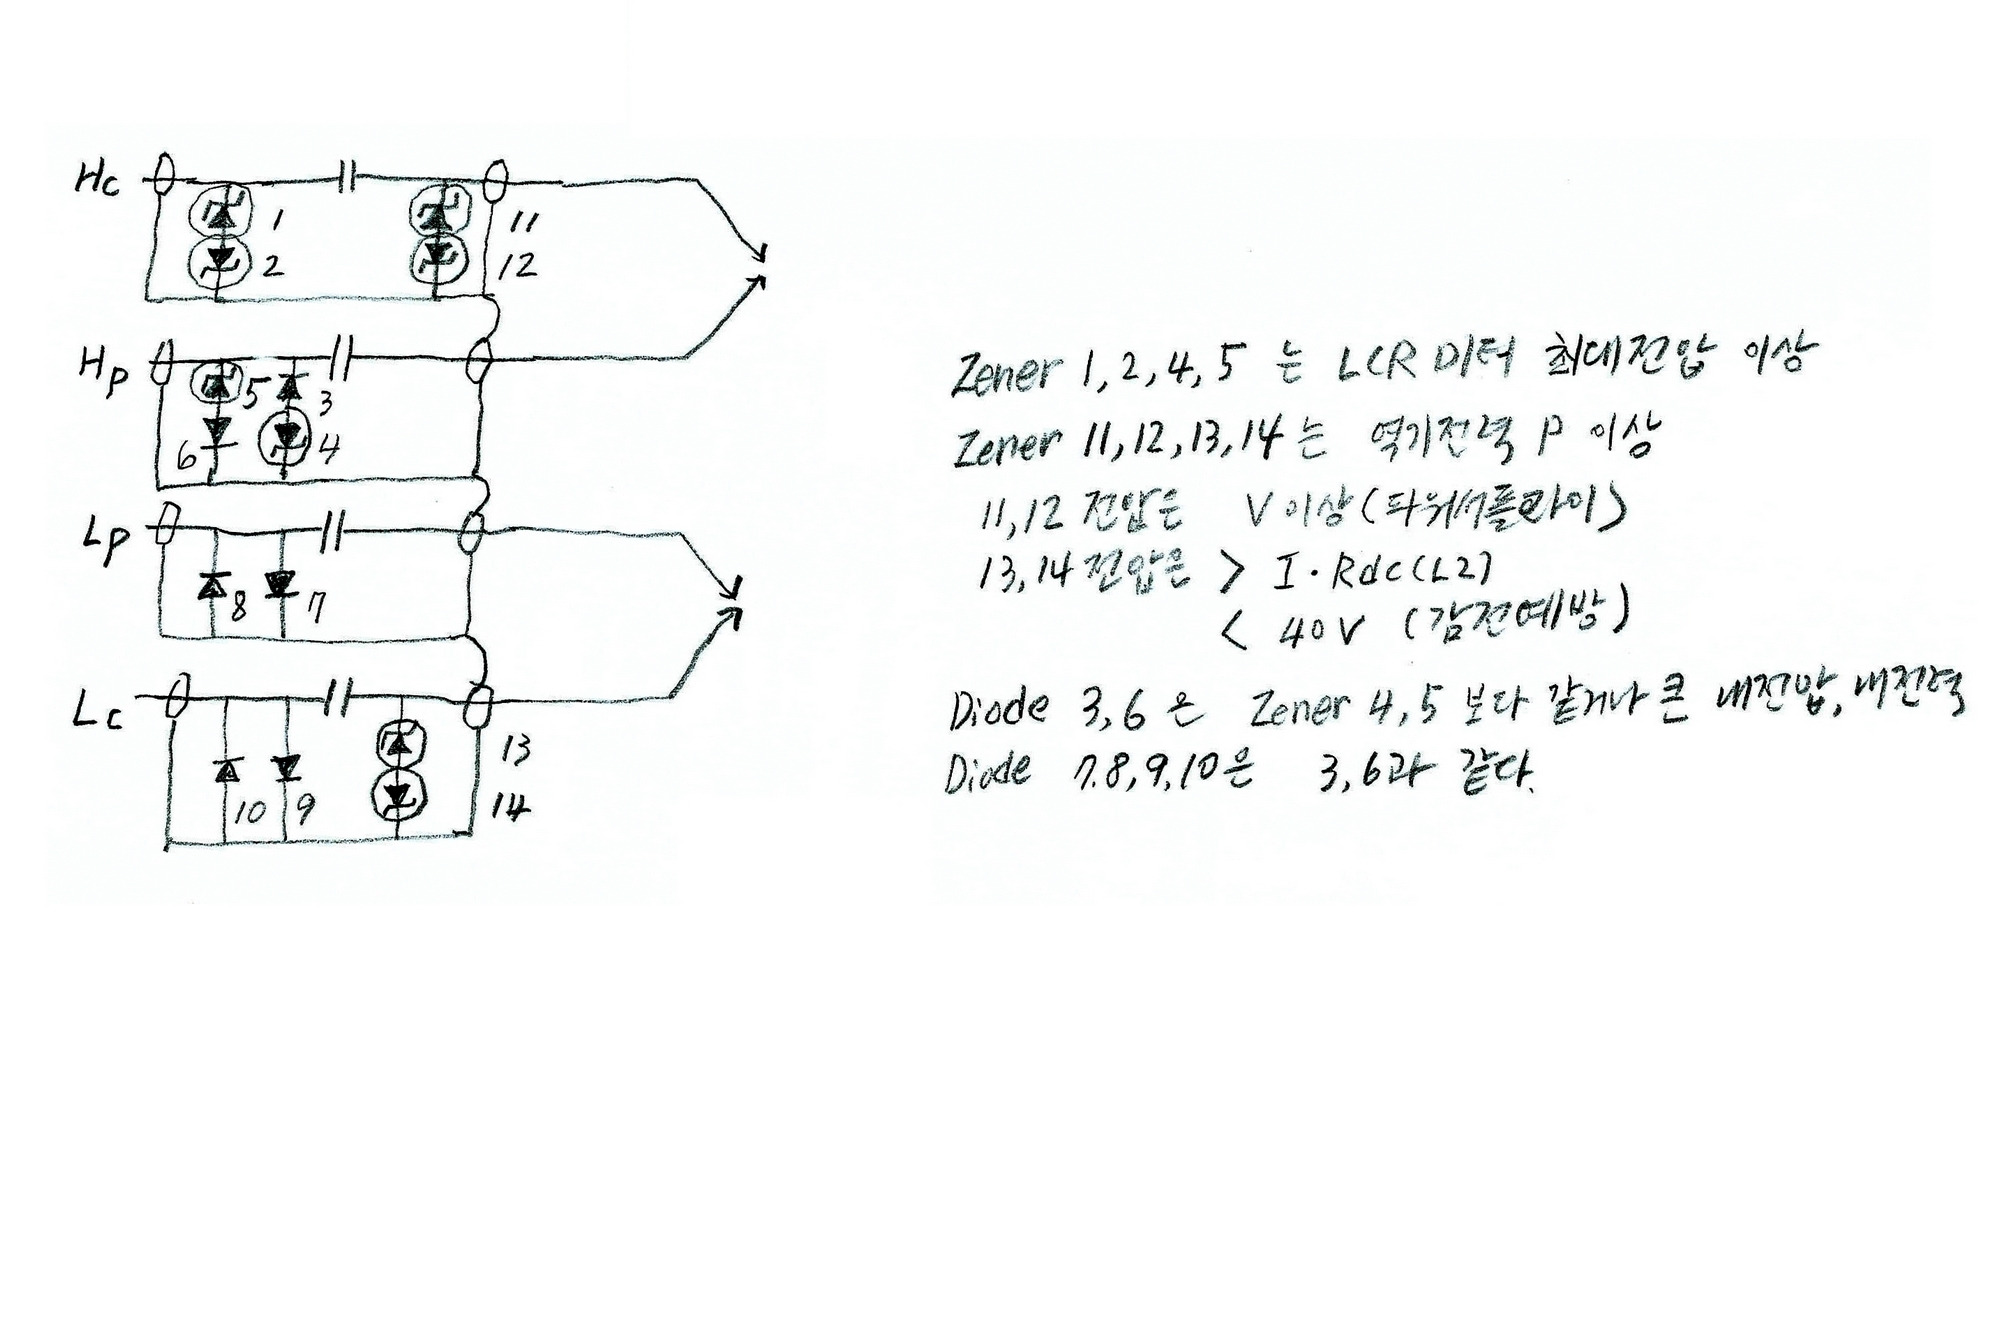 Hc
1
2
11
12
Hp
5
3
6
4
Lp
8
7
Lc
10
9
13
14
Zener 1, 2, 4, 5 는 LCR 미터 최대전압 이상
Zener 11, 12, 13, 14 는 역기전력 P 이상
11, 12 전압은 V 이상 (파워서플라이)
13, 14 전압은 > I · Rdc (L2)
< 40V (감전예방)
Diode 3, 6 은 Zener 4, 5 보다 같거나 큰 내전압, 내전력
Diode 7. 8, 9, 10은 3, 6과 같다.